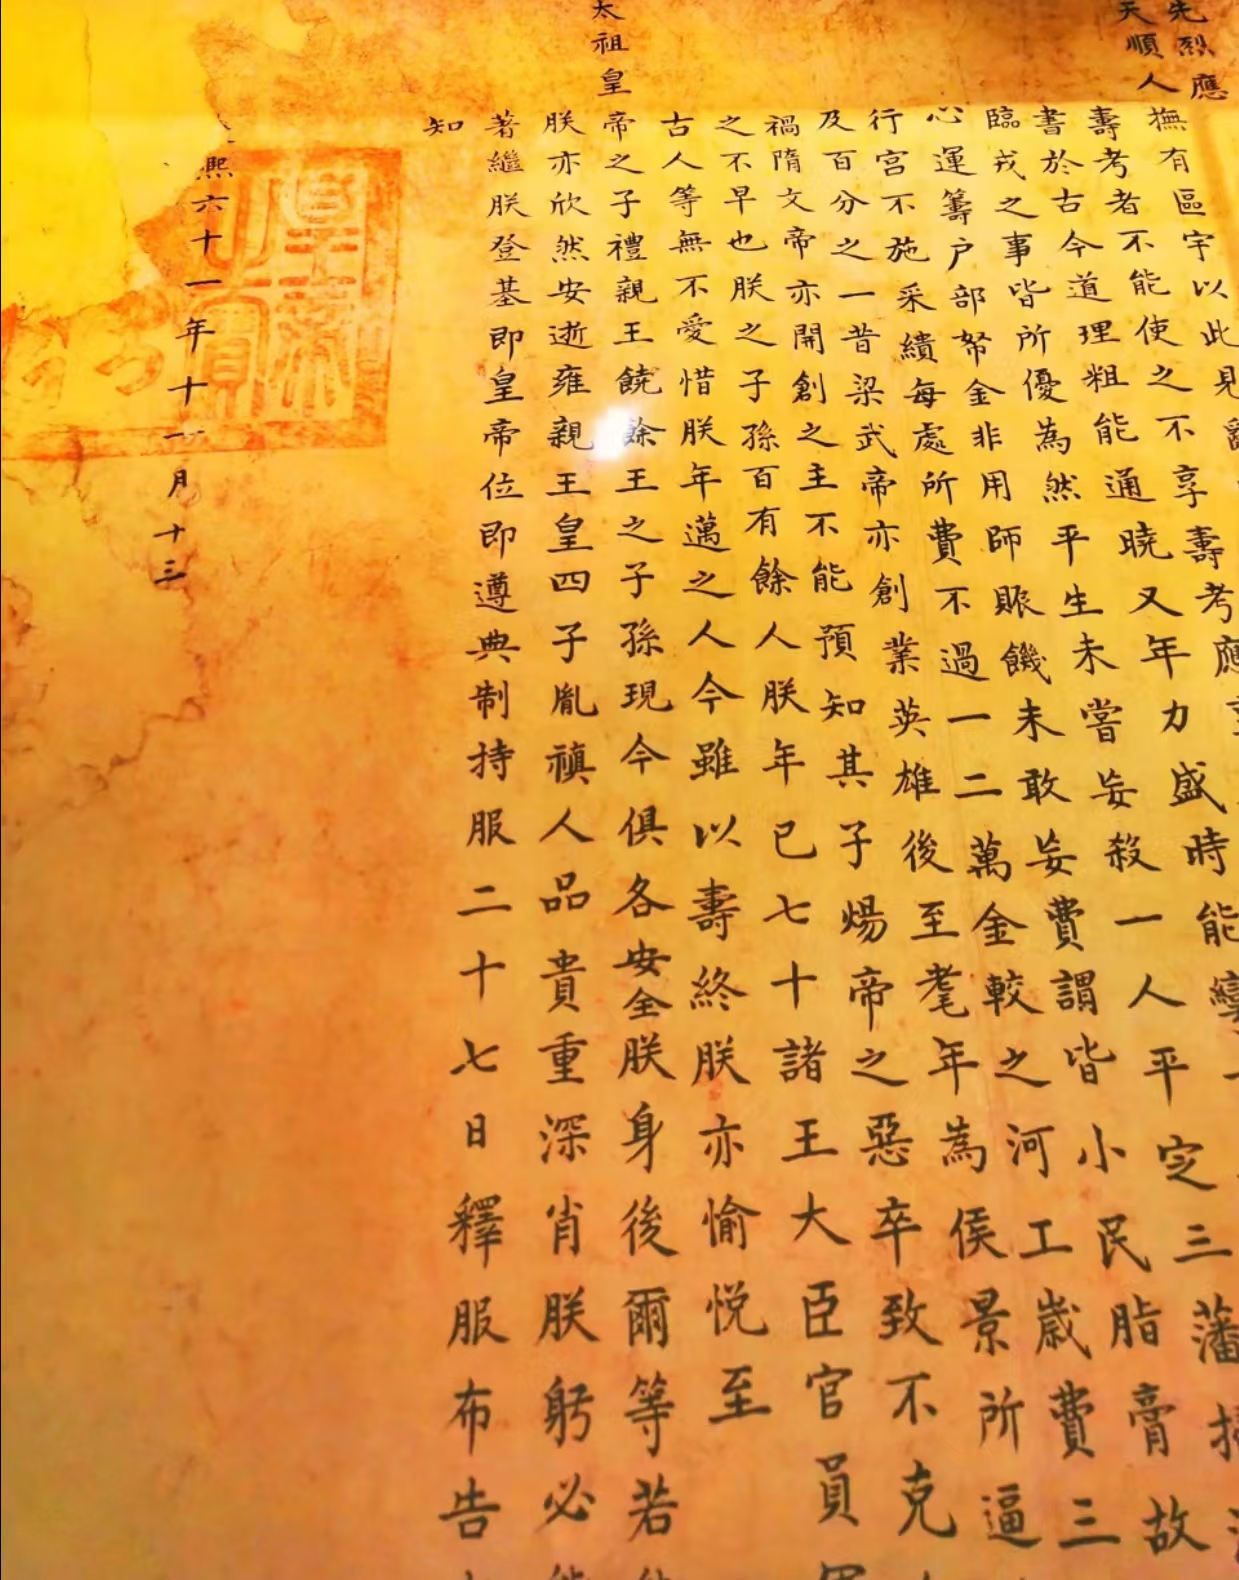 先烈應
天順人撫有區宇以此見
壽考者不能使之不享壽考應
書於古今道理粗能通曉又年力盛時能
臨戎之事皆所優為然平生未嘗妄殺一人平定三藩
心運籌户部帑金非用師賑饑未敢妄費謂皆小民脂膏故
行宮不施采繢每處所費不過一二萬金較之河工歲費三
及百分之一昔梁武帝亦創業英雄後至耄年為侯景所逼
禍隋文帝亦開創之主不能預知其子煬帝之惡卒致不克
之不早也朕之子孫百有餘人朕年已七十諸王大臣官員
古人等無不愛惜朕年邁之人今雖以壽終朕亦愉悦至
太祖皇帝之子禮親王饒餘王之子孫現今俱各安全朕身後爾等若
朕亦欣然安逝雍親王皇四子胤禛人品貴重深肖朕躬必
著繼朕登基即皇帝位即遵典制持服二十七日釋服布告
知
熙六十一年十一月十三